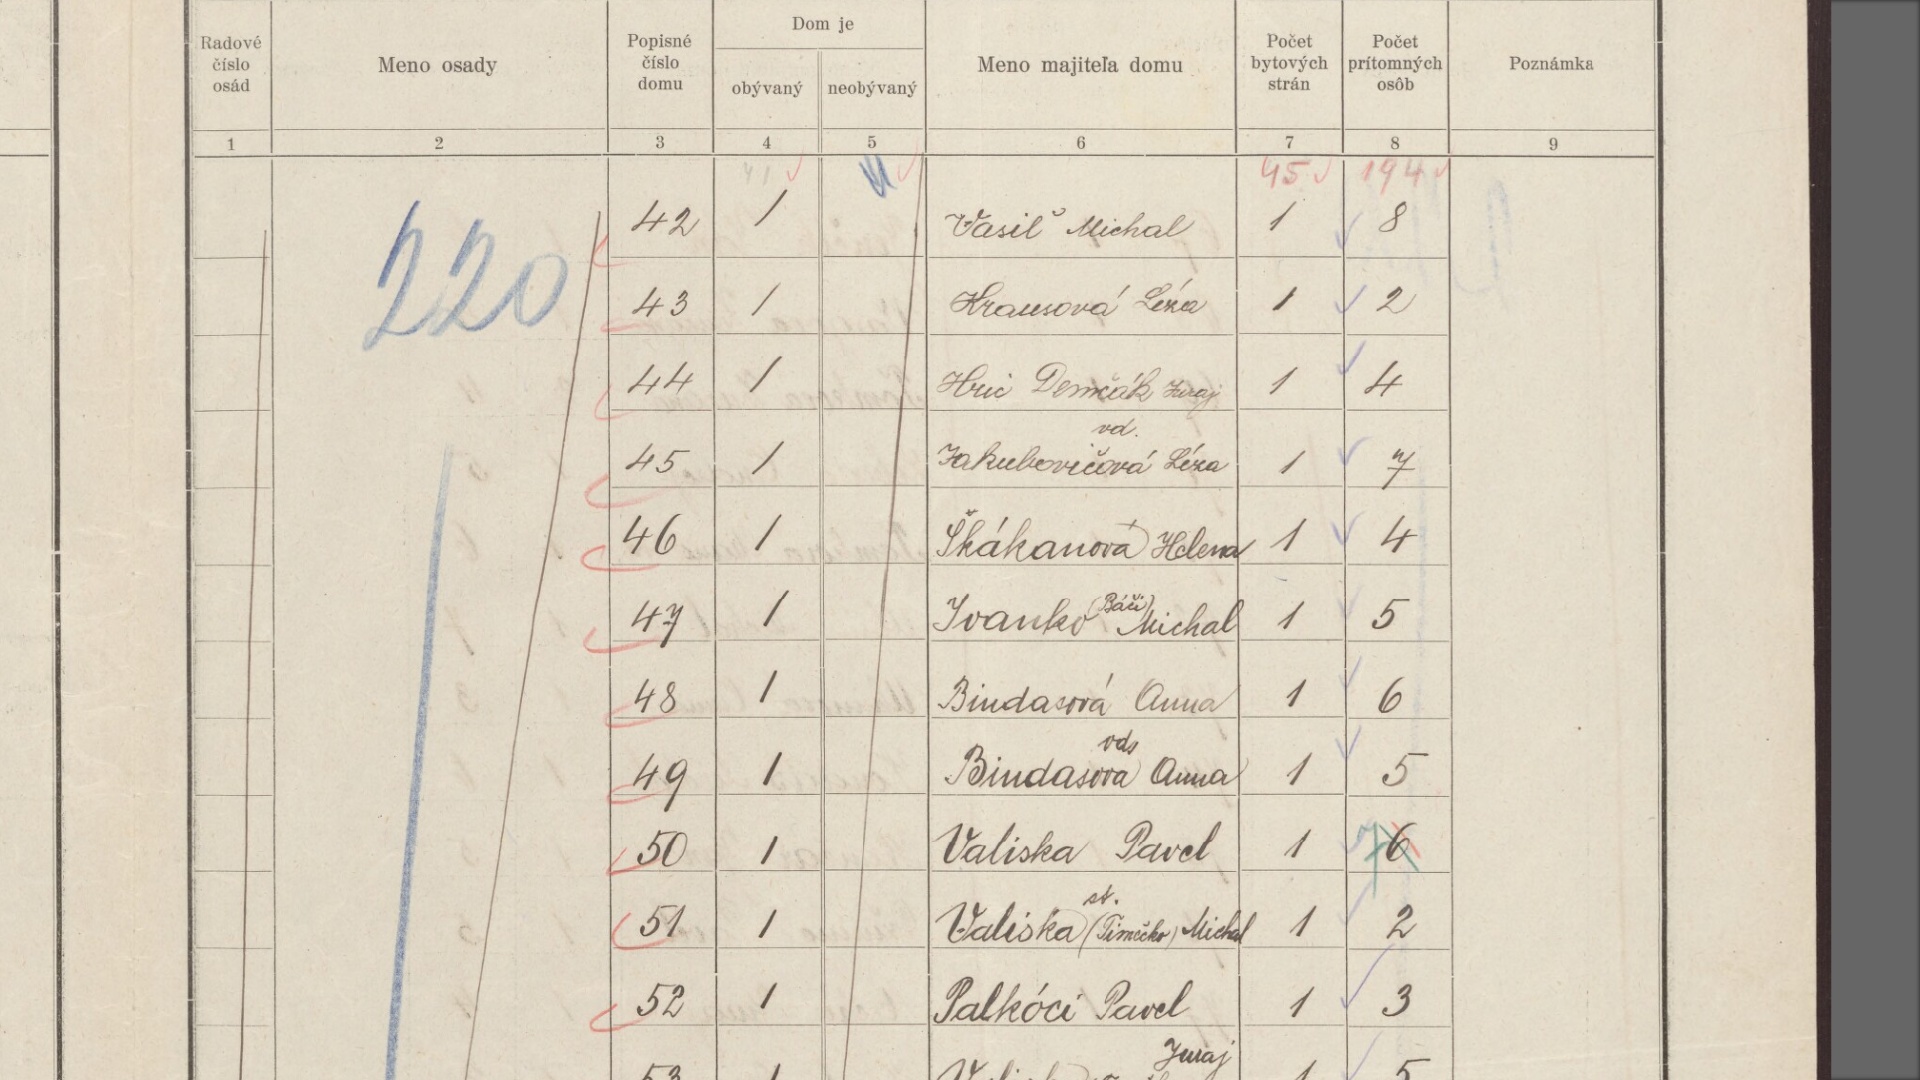 Dom je
Radové číslo osád
Meno osady
Popisné číslo domu
obývaný
neobývaný
Meno majiteľa domu
Počet bytových strán
Počet prítomných osôb
Poznámka
1 2 3 4 5 6 7 8 9
41 45 194
220
42 1 Vasiľ Michal 1 8
43 1 Hrausová Léza 1 2
44 1 Hric Demčák Juraj 1 4
vd.
45 1 Jakubovičová Léza 1 7
46 1 Škákanová Helena 1 4
47 1 Ivanko (Báči) Michal 1 5
48 1 Bindasová Anna 1 6
vds
49 1 Bindasová Anna 1 5
50 1 Valiska Pavel 1 7 6
st.
51 1 Valiska (Timečko) Michal 1 2
52 1 Palkóci Pavel 1 3
Juraj
53 1 1 5